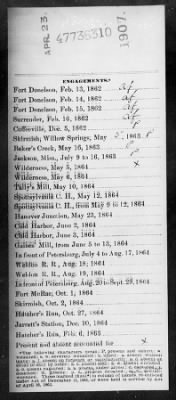 APR 23.
47736310
1907.
ENGAGEMENTS.
Fort Donelson, Feb. 13, 1862
Fort Donelson, Feb. 14, 1862
Fort Donelson, Feb. 15, 1862
Surrender, Feb. 16, 1862
Coffeeville, Dec. 5, 1862
Skirmish, Willow Springs, May 1863
Baker's Creek, May 16, 1863
Jackson, Miss., July 9 to 16, 1863
Wilderness, May 5, 1864 x
Wilderness, May 6, 1864
Tally's Mill, May 10, 1864
Spottsylvania C. H., May 12, 1864
Spottsylvania C. H., from May 9 to 12, 1864
Hanover Junction, May 23, 1864
Cold Harbor, June 2, 1864
Cold Harbor, June 3, 1864
Gaines' Mill, from June 5 to 13, 1864
In front of Petersburg, July 4 to Aug. 17, 1864
Weldon R. R., Aug. 18, 1864
Weldon R. R., Aug. 19, 1864
In front of Petersburg, Aug. 20 to Sept. 28, 1864
Fort McRae, Oct. 1, 1864
Skirmish, Oct. 2, 1864
Hatcher's Run, Oct. 27, 1864
Jarratt's Station, Dec. 10, 1864
Hatcher's Run, Feb. 6, 1863
Present and absent accounted for x